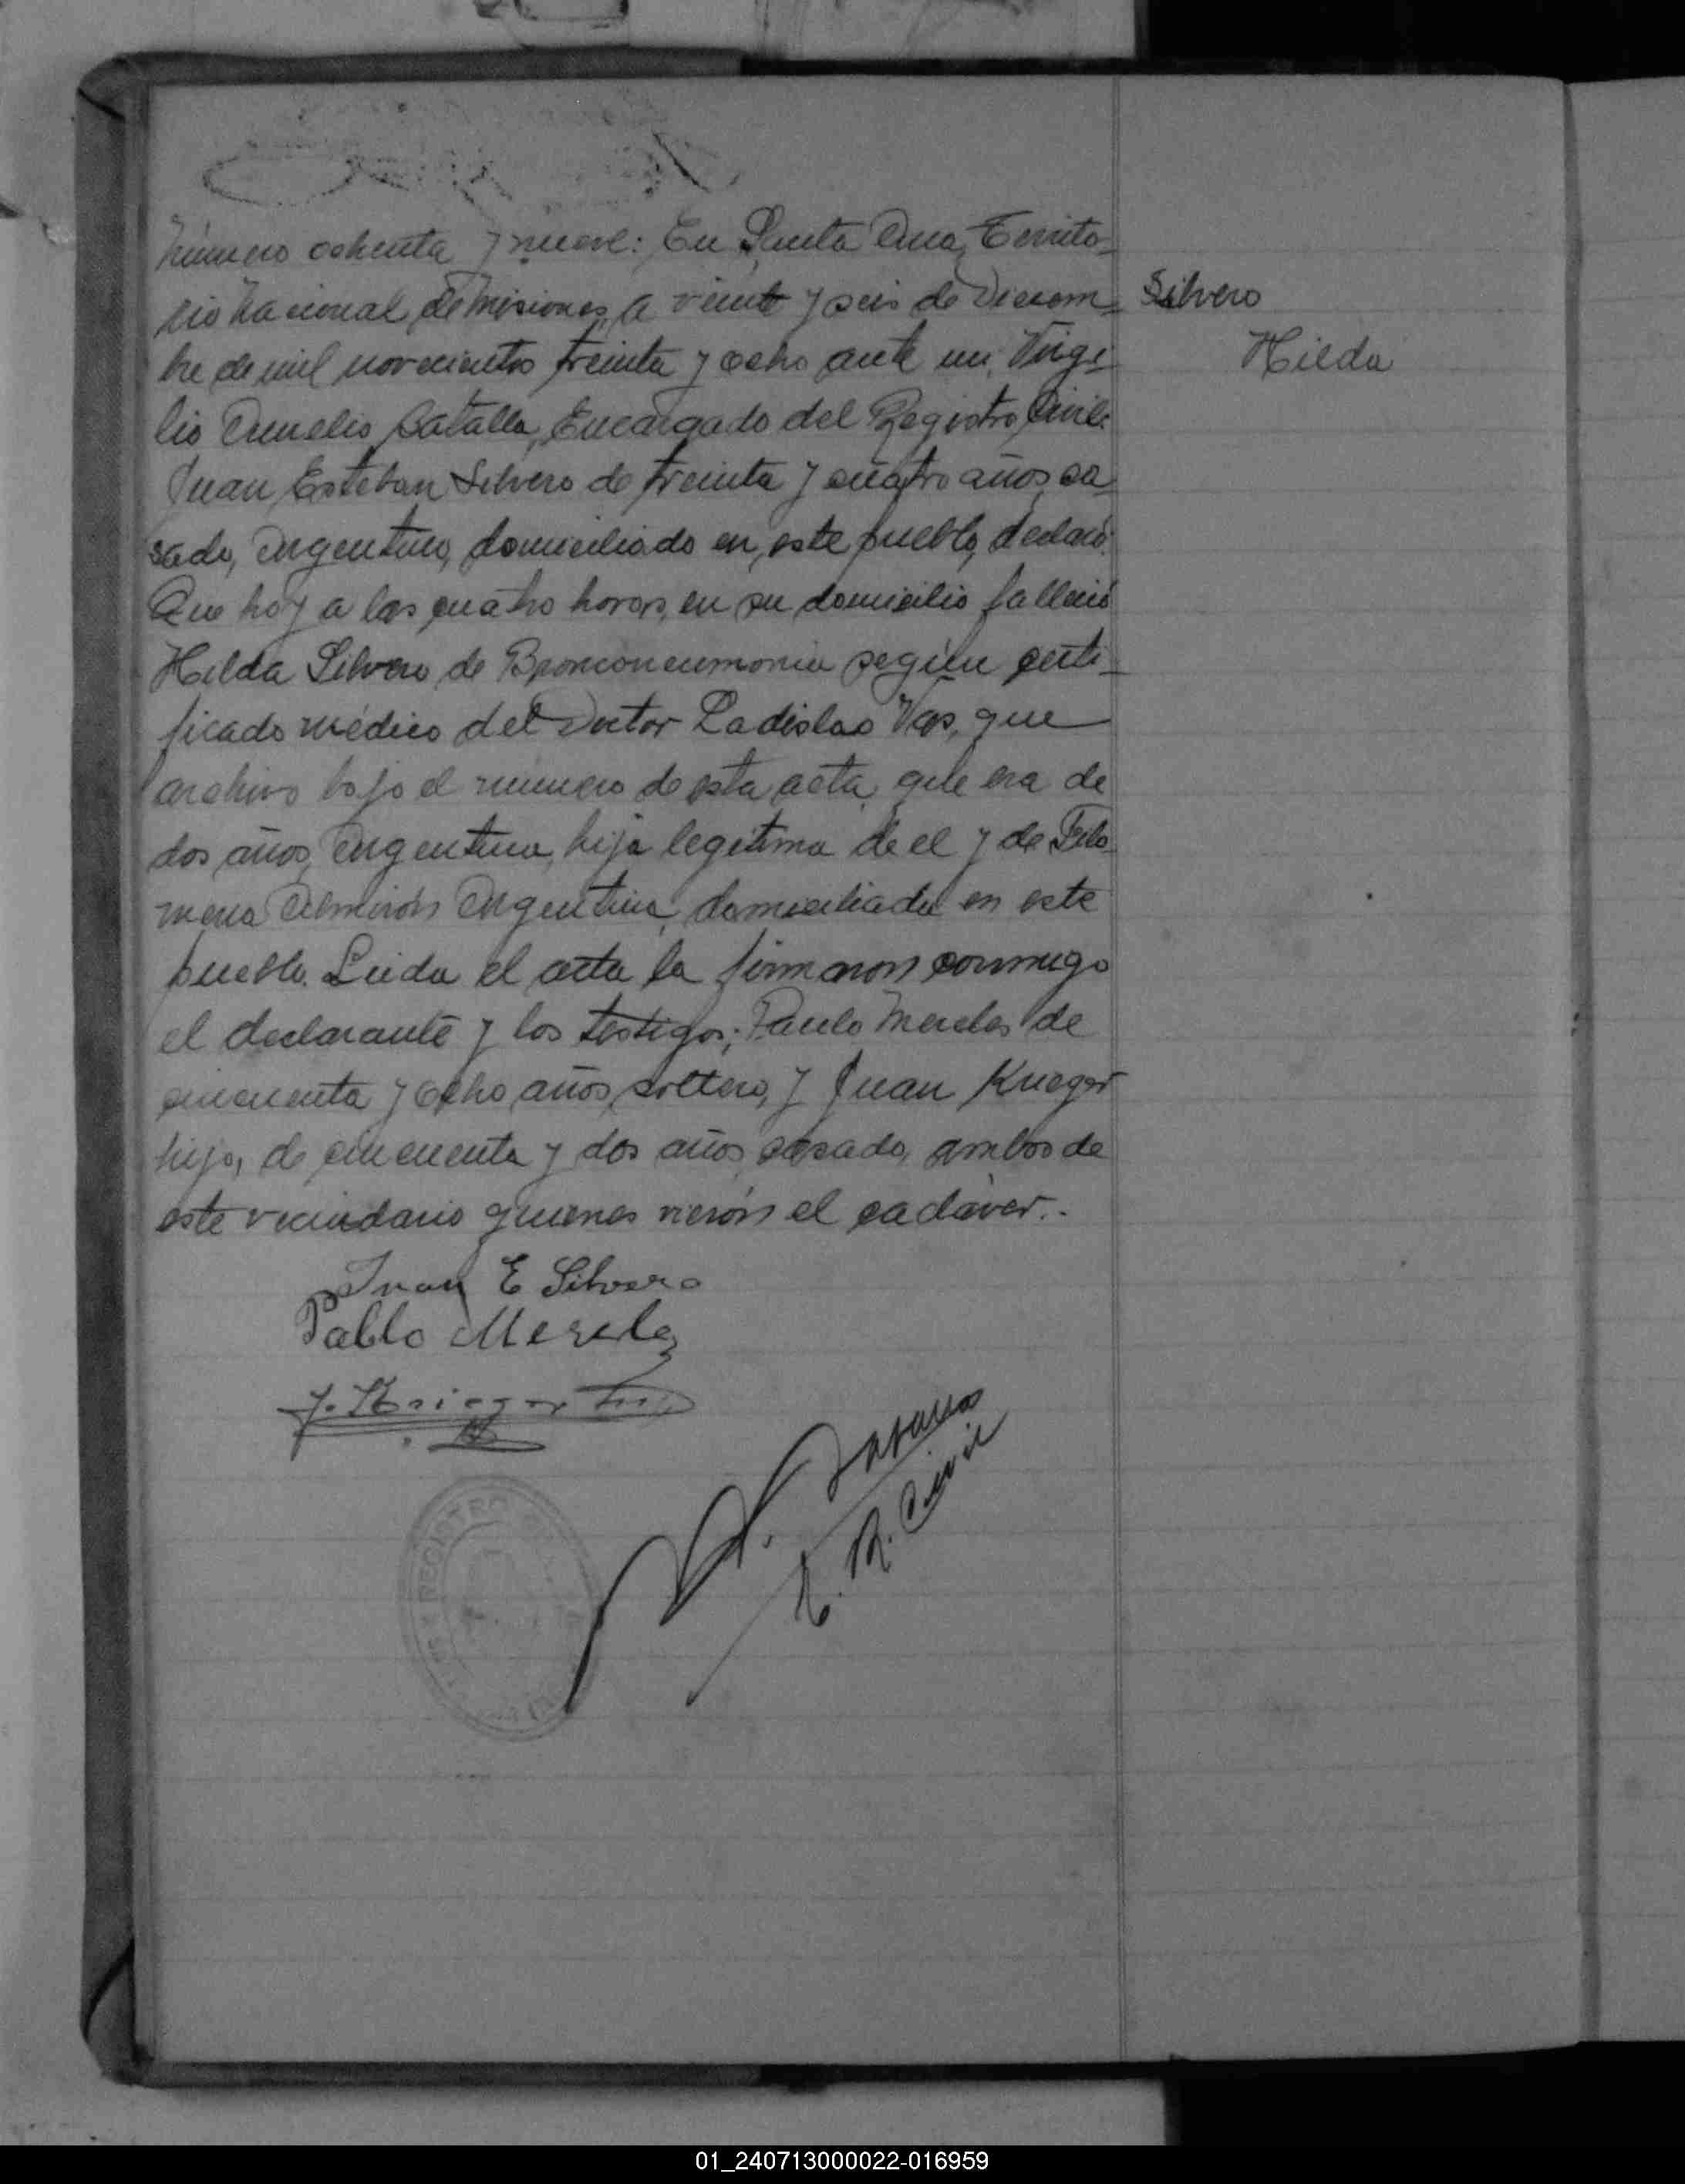 Número ochenta y nueve: En Santa Ana, Territo-
rio Nacional de Misiones, a veinte y seis de Diciem-
bre de mil novecientos treinta y ocho ante mi, Virgi-
lio Aurelio Batalla, Encargado del Registro Civil:
Juan Esteban Silvero de treinta y cuatro años, ca-
sado, Argentino, domiciliado en este pueblo, declaró:
Que hoy a las cuatro horas, en su domicilio falleció
Hilda Silvero de Bronconeumonia según certi-
ficado médico del Doctor Ladislao Vas, que
archivo bajo el número de esta acta, que era de
dos años, Argentina, hija legítima de el y de Filo-
mena Almirón Argentina, domiciliada en este
pueblo. Leida el acta la firmaron conmigo
el declarante y los testigos; Paulo Mereles de
cincuenta y ocho años, soltero, y Juan Krieger
hijo, de cincuenta y dos años, casado, ambos de
este vecindario quienes vierón el cadáver..
Silvero
Hilda
Juan E Silvero
Pablo Mereles
J. Krieger hijo
E. R. Civil
REGISTRO
01_240713000022-016959